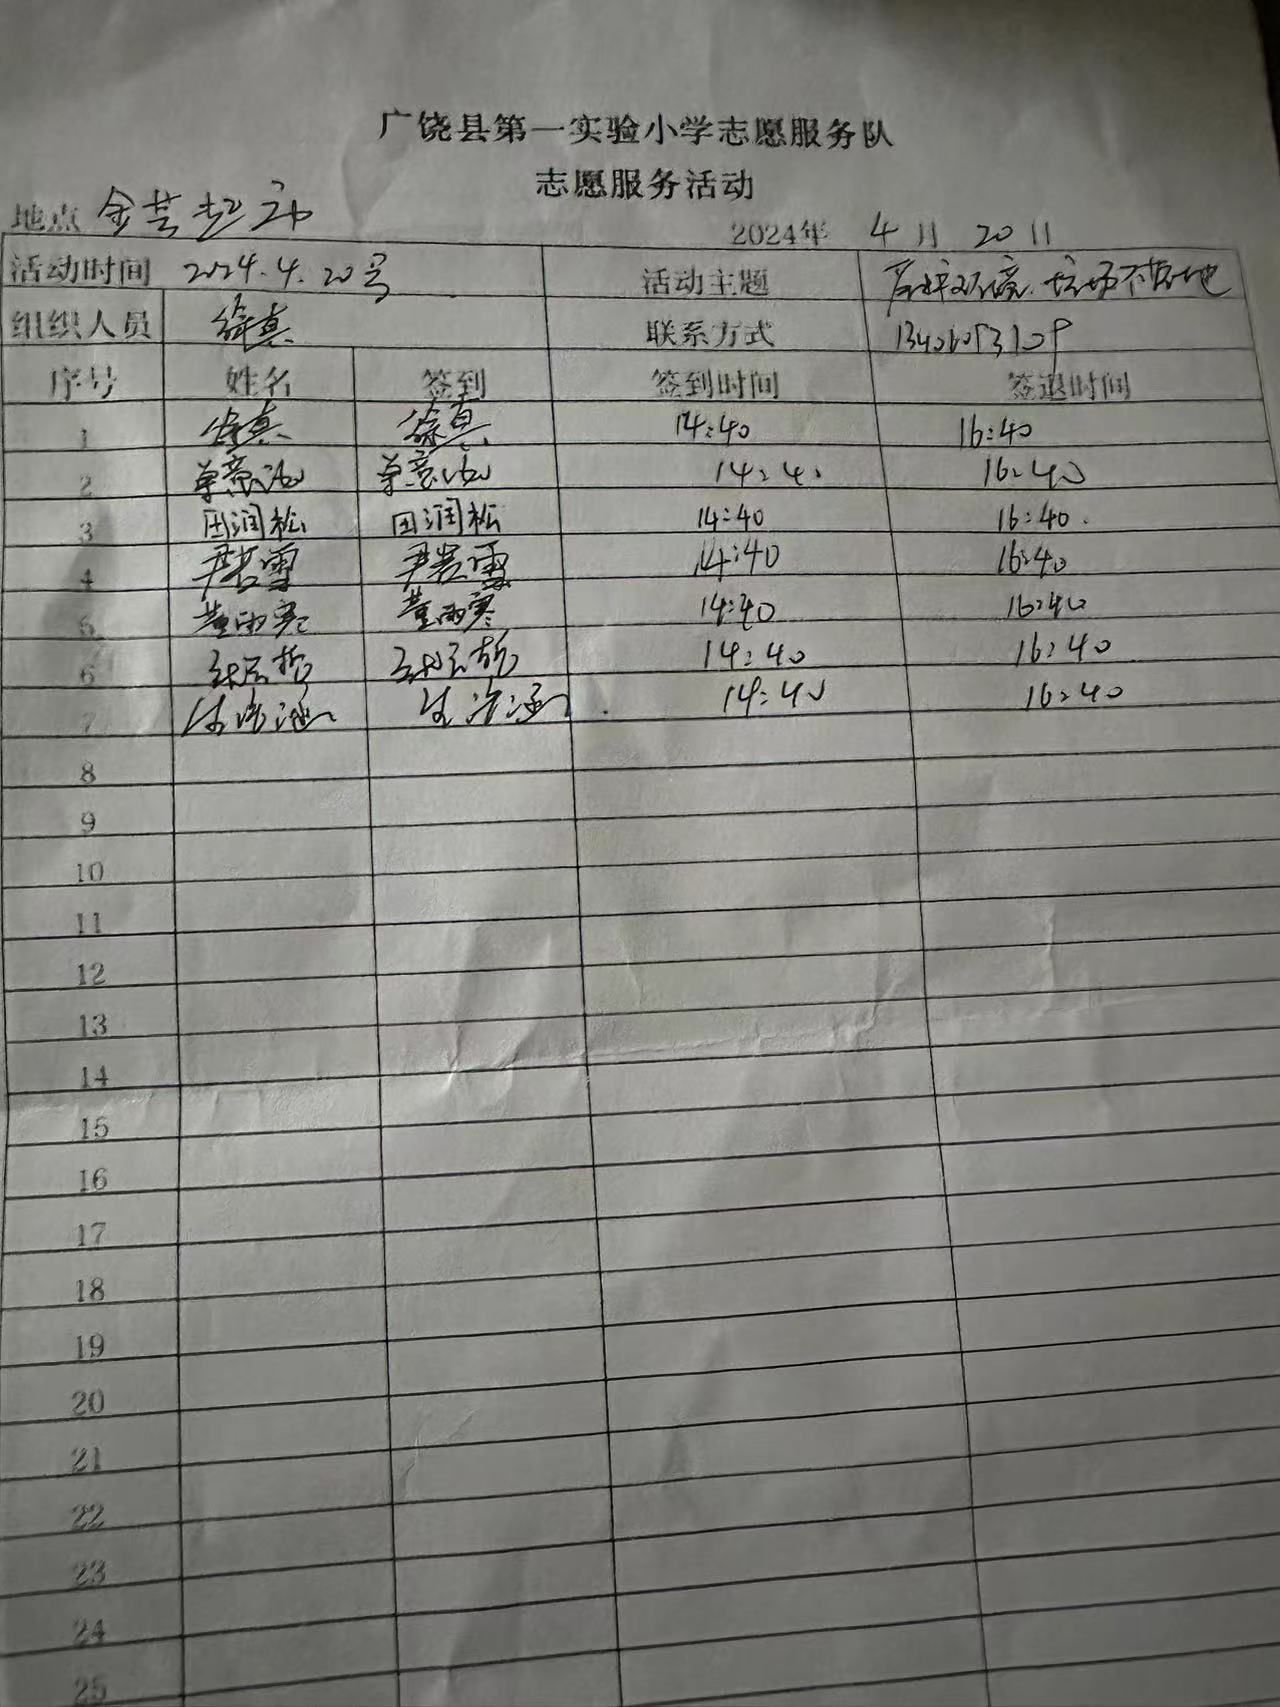 广饶县第一实验小学志愿服务队
志愿服务活动
地点 金芸起 2024年 4月 20日
活动时间 2024.4.20号 活动主题 环境.垃圾不落地
组织人员 徐真 联系方式
序号 姓名 签到 签到时间 签退时间
1 徐真 徐真 14:40 16:40
2 单意涵 单意涵 14:40 16:40
3 田润松 田润松 14:40 16:40
4 尹若雪 尹若雪 14:40 16:40
5 董雨寒 董雨寒 14:40 16:40
6 14:40 16:40
7 14:40 16:40
8
9
10
11
12
13
14
15
16
17
18
19
20
21
22
23
24
25